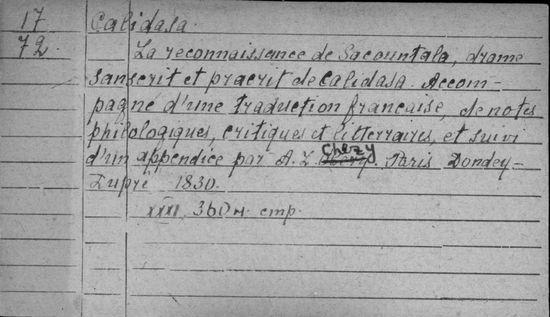 17 Calidasa.
72. La reconnaissance de Sacountala, drame
sanscrit et pracrit de Calidasa. Accom-
pagné d'une traduction francaise, de notes
philologiques, critiques et litterraires, et suivi
Chezy
d'un appendice par A. L. Paris Dondey-
Dupré 1830.
XXXI, 360 н. стр.